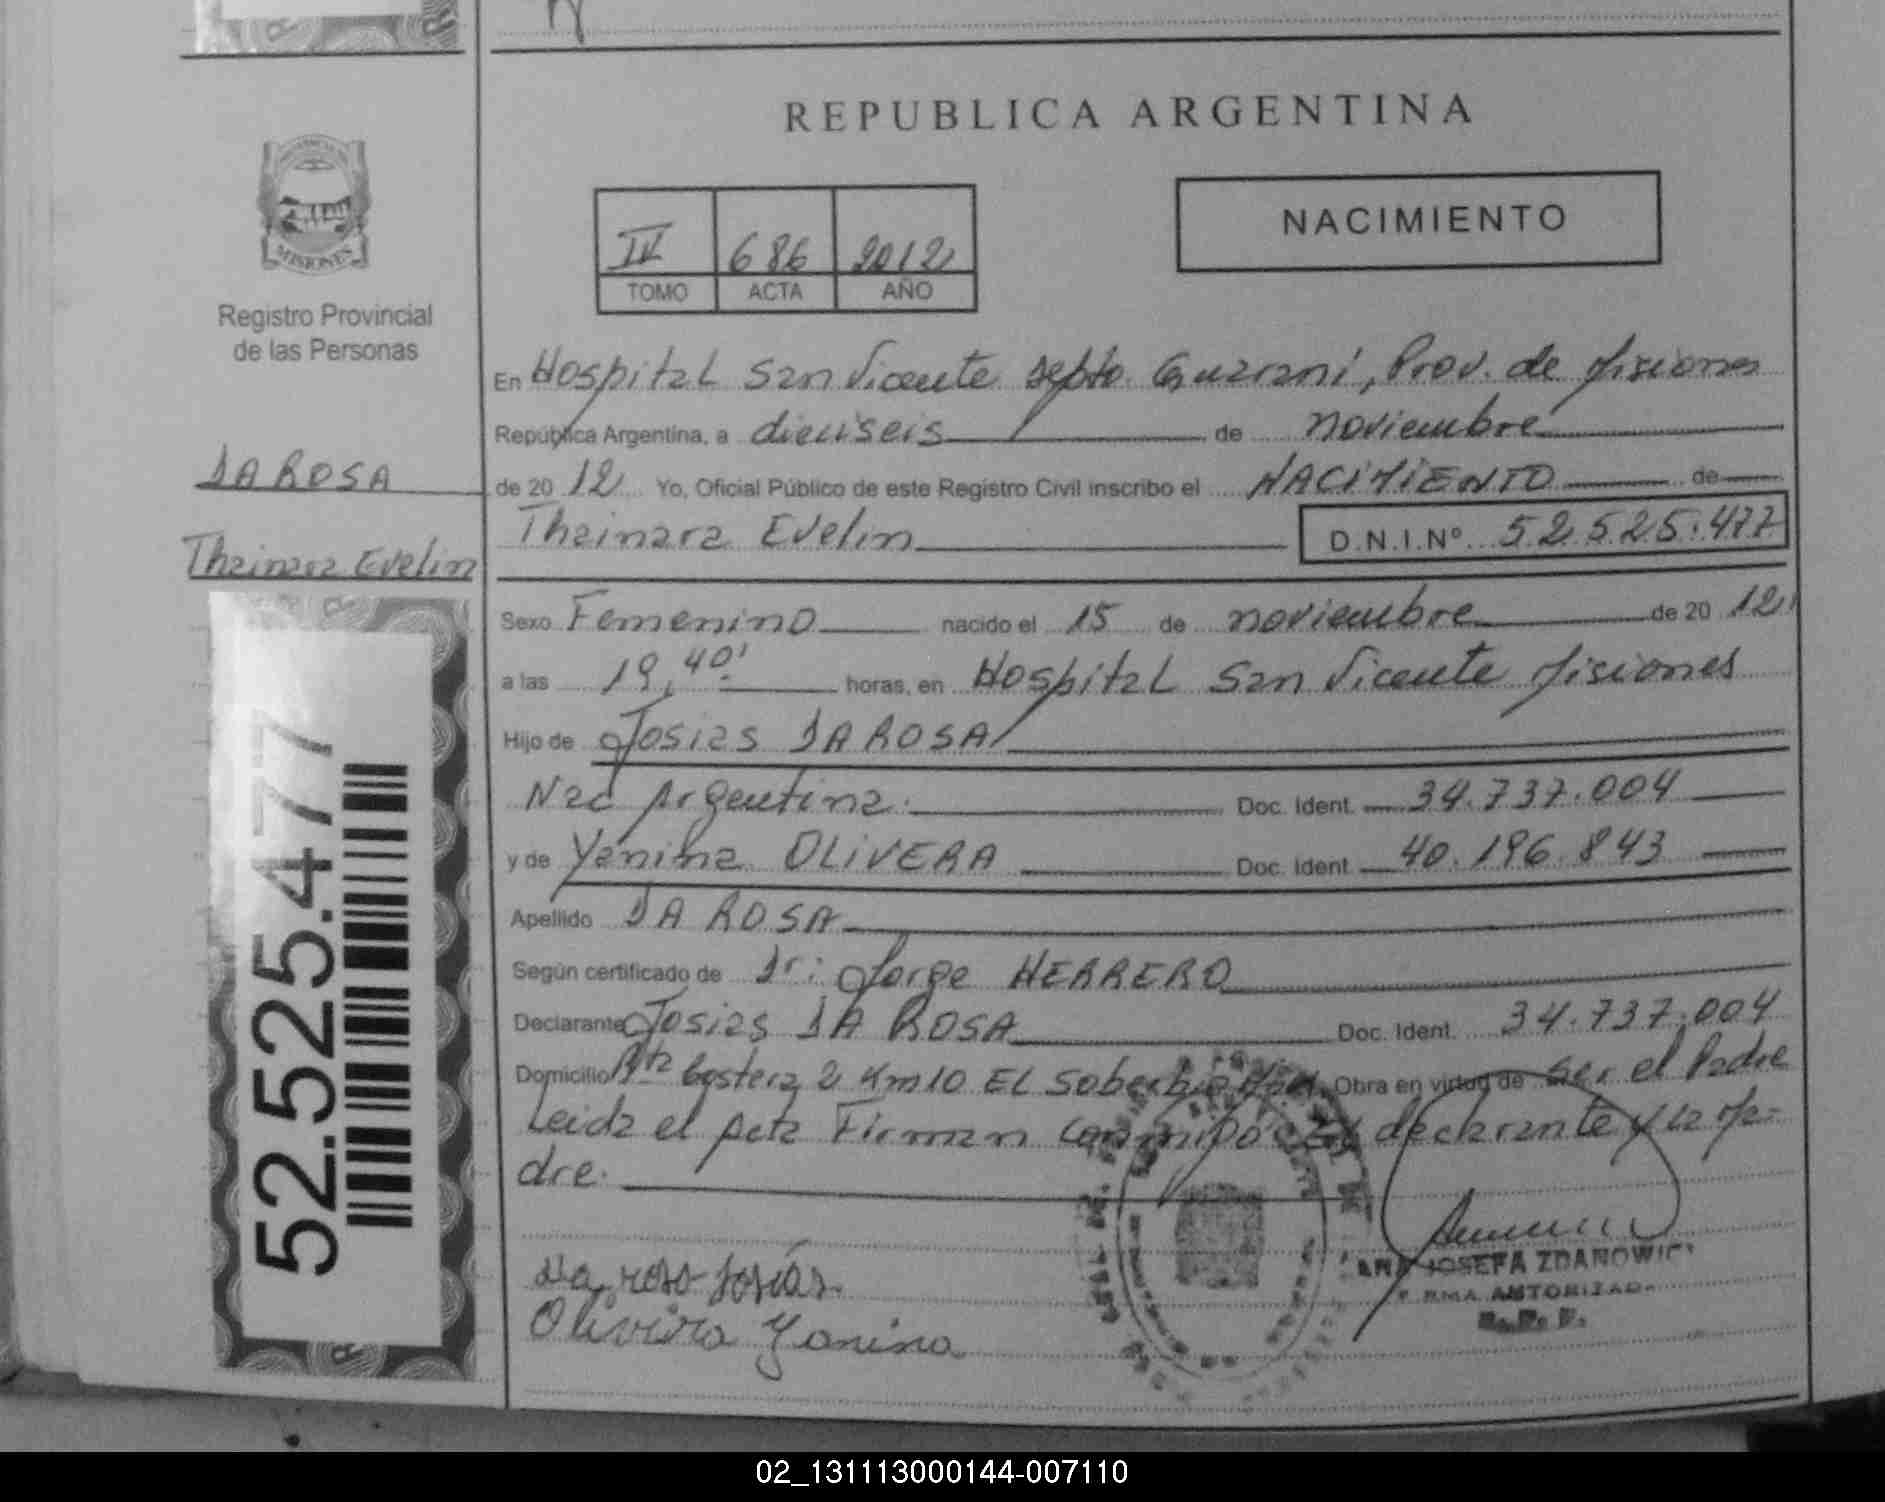 REPUBLICA ARGENTINA
NACIMIENTO
IV 686 2012
TOMO ACTA AÑO
MISIONES
Registro Provincial
de las Personas
DA ROSA
Thainara Evelin
52.525.477
En Hospital San Vicente Depto. Guaraní, Prov. de Misiones
República Argentina, a dieciseis de noviembre
de 20 12 Yo, Oficial Público de este Registro Civil inscribo el NACIMIENTO de
Thainara Evelin D.N.I.Nº 52.525.477
Sexo Femenino nacido el 15 de noviembre de 20 12
a las 19,40' horas, en Hospital San Vicente Misiones
Hijo de Josias DA ROSA
Nac Argentina. Doc. Ident. 34.737.004
y de Yanina OLIVERA Doc. Ident. 40.196.843
Apellido DA ROSA
Según certificado de Dr: Jorge HERRERO
Declarante Josias DA ROSA Doc. Ident. 34.737.004
Domicilio Rta Costera 2 Km 10 EL Soberbio Obra en virtud de ser el Padre
Leida el Acta Firman conmigo el declarante y la Ma-
dre.
Da rosa Josías
Olivera Yanina
JOSEFA ZDANOWIC
FIRMA AUTORIZADA
R. P. P.
02_131113000144-007110